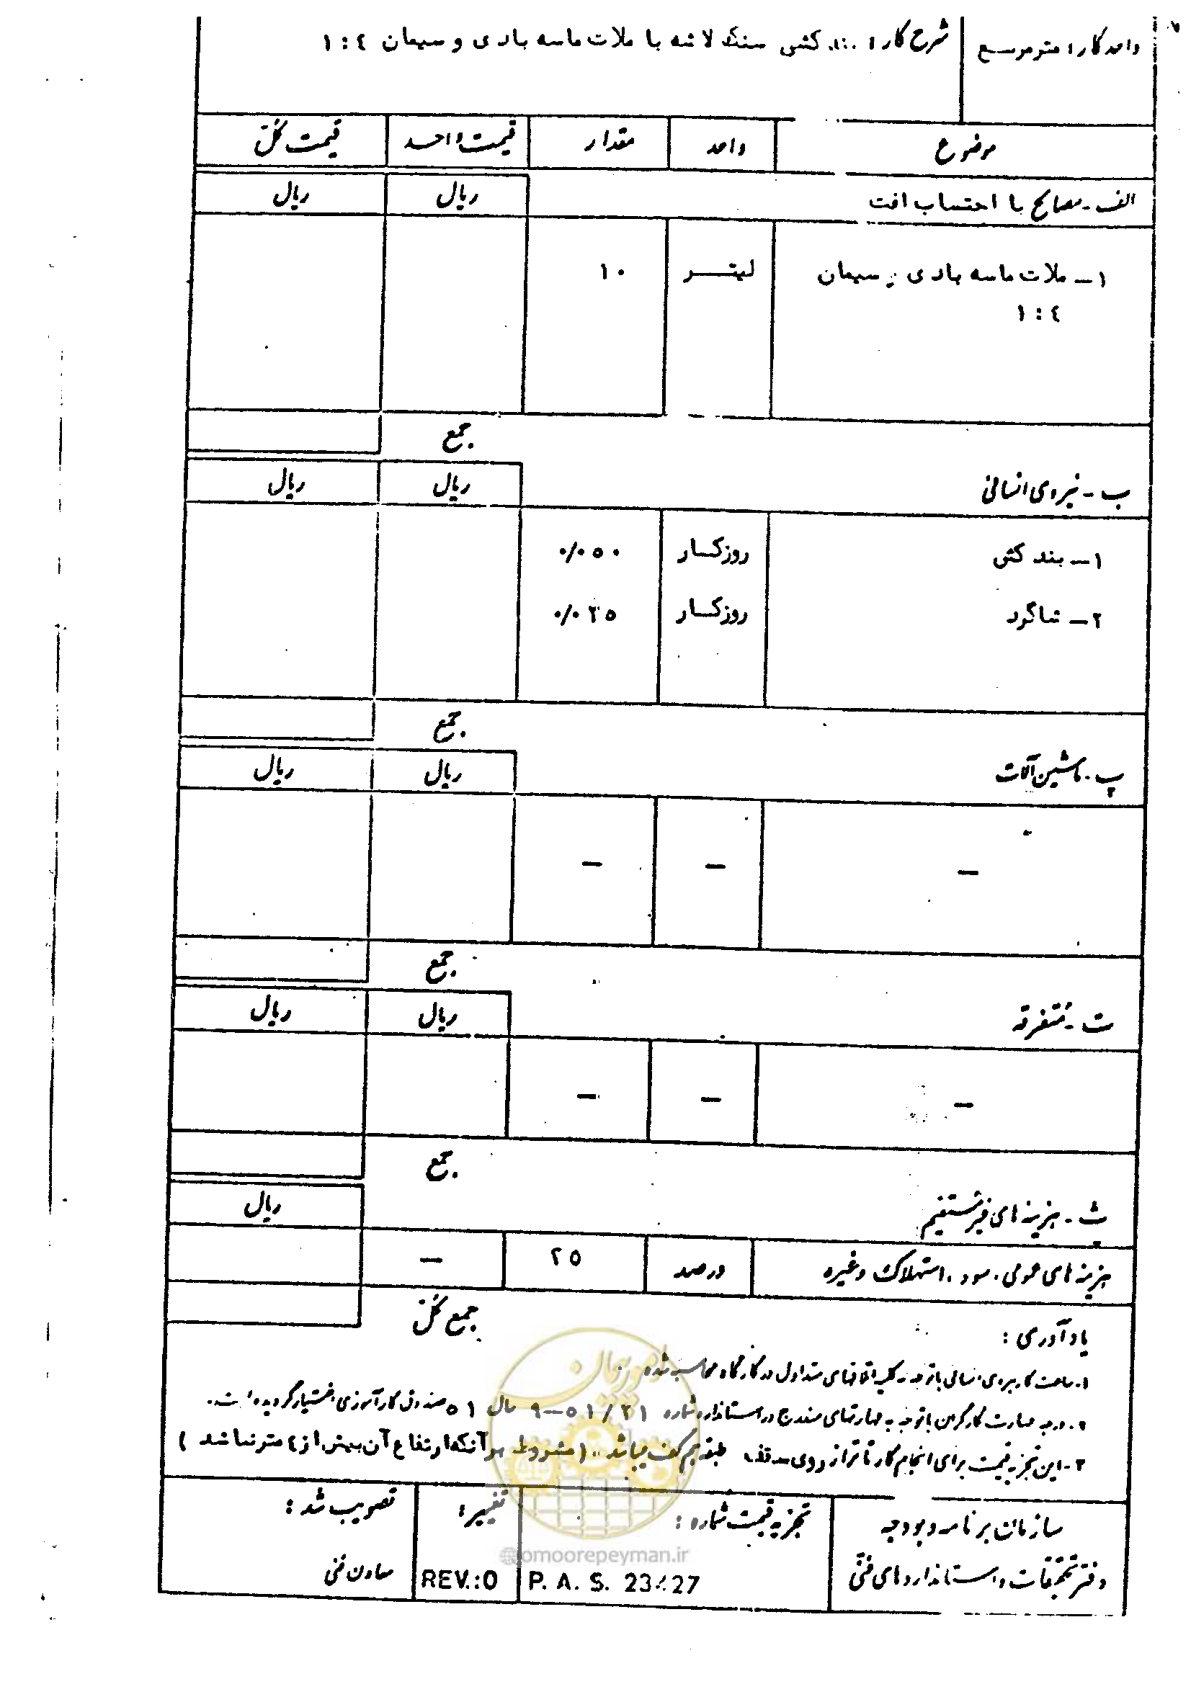 واحد کار: مترمربع
شرح کار: بند کشی سنگ لاشه با ملات ماسه بادی و سیمان ۱:٤
موضوع واحد مقدار قیمت واحد قیمت کل
الف - مصالح با احتساب افت ریال ریال
۱ – ملات ماسه بادی و سیمان لیتر ۱۰
۱:٤
جمع
ب - نیروی انسانی ریال ریال
۱ – بند کش روزکار ۰/۰۵۰
۲ – شاگرد روزکار ۰/۰۲۵
جمع
پ - ماشین آلات ریال ریال
– – –
جمع
ت - متفرقه ریال ریال
– – –
جمع
ث - هزینه های غیرمستقیم ریال
هزینه های عمومی، سود، استهلاک وغیره درصد ۲۵ –
جمع کل
یادآوری :
۱- ساعت کار نیروی انسانی با توجه به کلیه اتلافهای متداول در کارگاه محاسبه شده
۲- درجه مهارت کارگران با توجه به مهارتهای مندرج در استاندارد شماره ۹–۰۱/۲۱ سال ۵۱ صندوق کارآموزی اختیار گردیده است.
۳- این تجزیه قیمت برای انجام کار تا تراز روی سقف طبقه هم کف میباشد. (مشروط بر آنکه ارتفاع آن بیش از ٤ متر نباشد)
سازمان برنامه و بودجه
دفتر تحقیقات و استانداردهای فنی
تجزیه قیمت شماره :
P. A. S. 23427
تغییر:
REV.:0
تصویب شد :
معاون فنی
امور پیمان
@omoorepeyman.ir